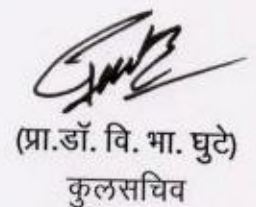 (प्रा.डॉ. वि. भा. घुटे)
कुलसचिव